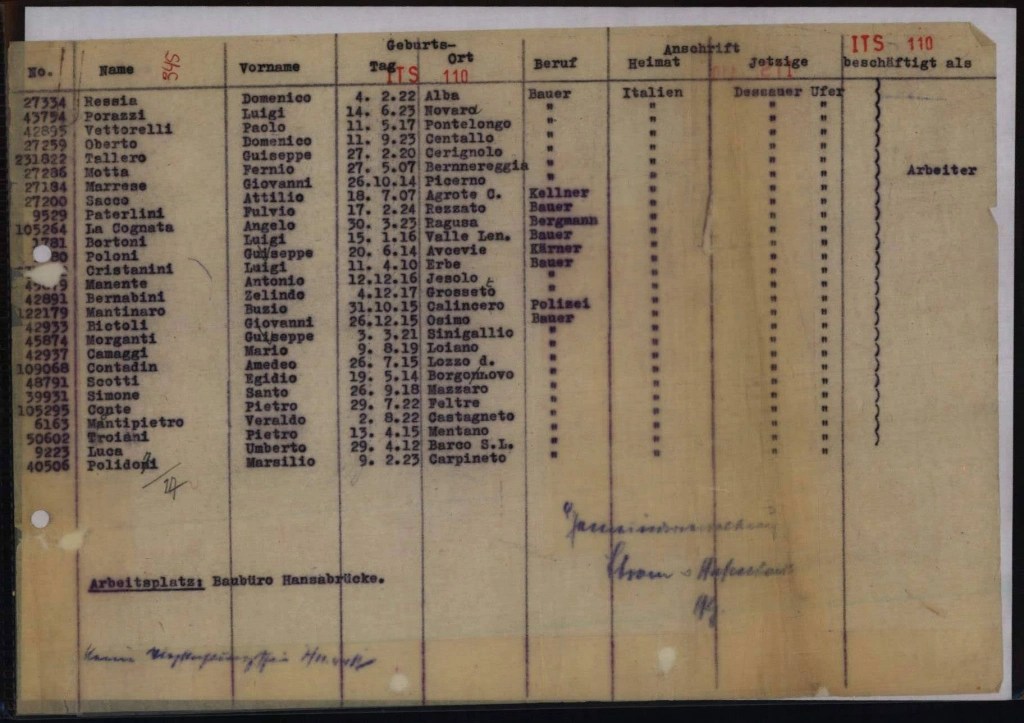 ITS 110
Geburts- Anschrift
No. Name 345 Vorname Tag Ort Beruf Heimat Jetzige beschäftigt als
ITS 110
27334 Ressia Domenico 4. 2.22 Alba Bauer Italien Dessauer Ufer
43754 Porazzi Luigi 14. 6.23 Novara " " " "
42895 Vettorelli Paolo 11. 5.17 Pontelongo " " " "
27259 Oberto Domenico 11. 9.23 Centallo " " " "
231822 Tallero Guiseppe 27. 2.20 Cerignolo " " " "
27286 Motta Fernio 27. 5.07 Bernnereggia " " " " Arbeiter
27184 Marrese Giovanni 26.10.14 Picerno " " " "
27200 Sacco Attilio 18. 7.07 Agrote C. Kellner " " "
9529 Paterlini Fulvio 17. 2.24 Rezzato Bauer " " "
105264 La Cognata Angelo 30. 3.23 Ragusa Bergmann " " "
1781 Bortoni Luigi 15. 1.16 Valle Len. Bauer " " "
80 Poloni Guiseppe 20. 6.14 Avcevie Kärner " " "
Cristanini Luigi 11. 4.10 Erbe Bauer " " "
Manente Antonio 12.12.16 Jesolo " " " "
42891 Bernabini Zelindo 4.12.17 Grosseto " " " "
122179 Mantinaro Buzio 31.10.15 Calincero Polizei " " "
42933 Bictoli Giovanni 26.12.15 Osimo Bauer " " "
45874 Morganti Guiseppe 3. 3.21 Sinigallic " " " "
42937 Camaggi Mario 9. 8.19 Loiano " " " "
109068 Contadin Amedeo 26. 7.15 Lozzo d. " " " "
48791 Scotti Egidio 19. 5.14 Borgonnovo " " " "
39931 Simone Santo 26. 9.18 Mazzaro " " " "
105295 Conte Pietro 29. 7.22 Feltre " " " "
6163 Mantipietro Veraldo 2. 8.22 Castagneto " " " "
50602 Troiani Pietro 13. 4.15 Mentano " " " "
9223 Luca Umberto 29. 4.12 Barco S.L. " " " "
40506 Polidoni Marsilio 9. 2.23 Carpineto " " " "
27
Arbeitsplatz: Baubüro Hansabrücke.